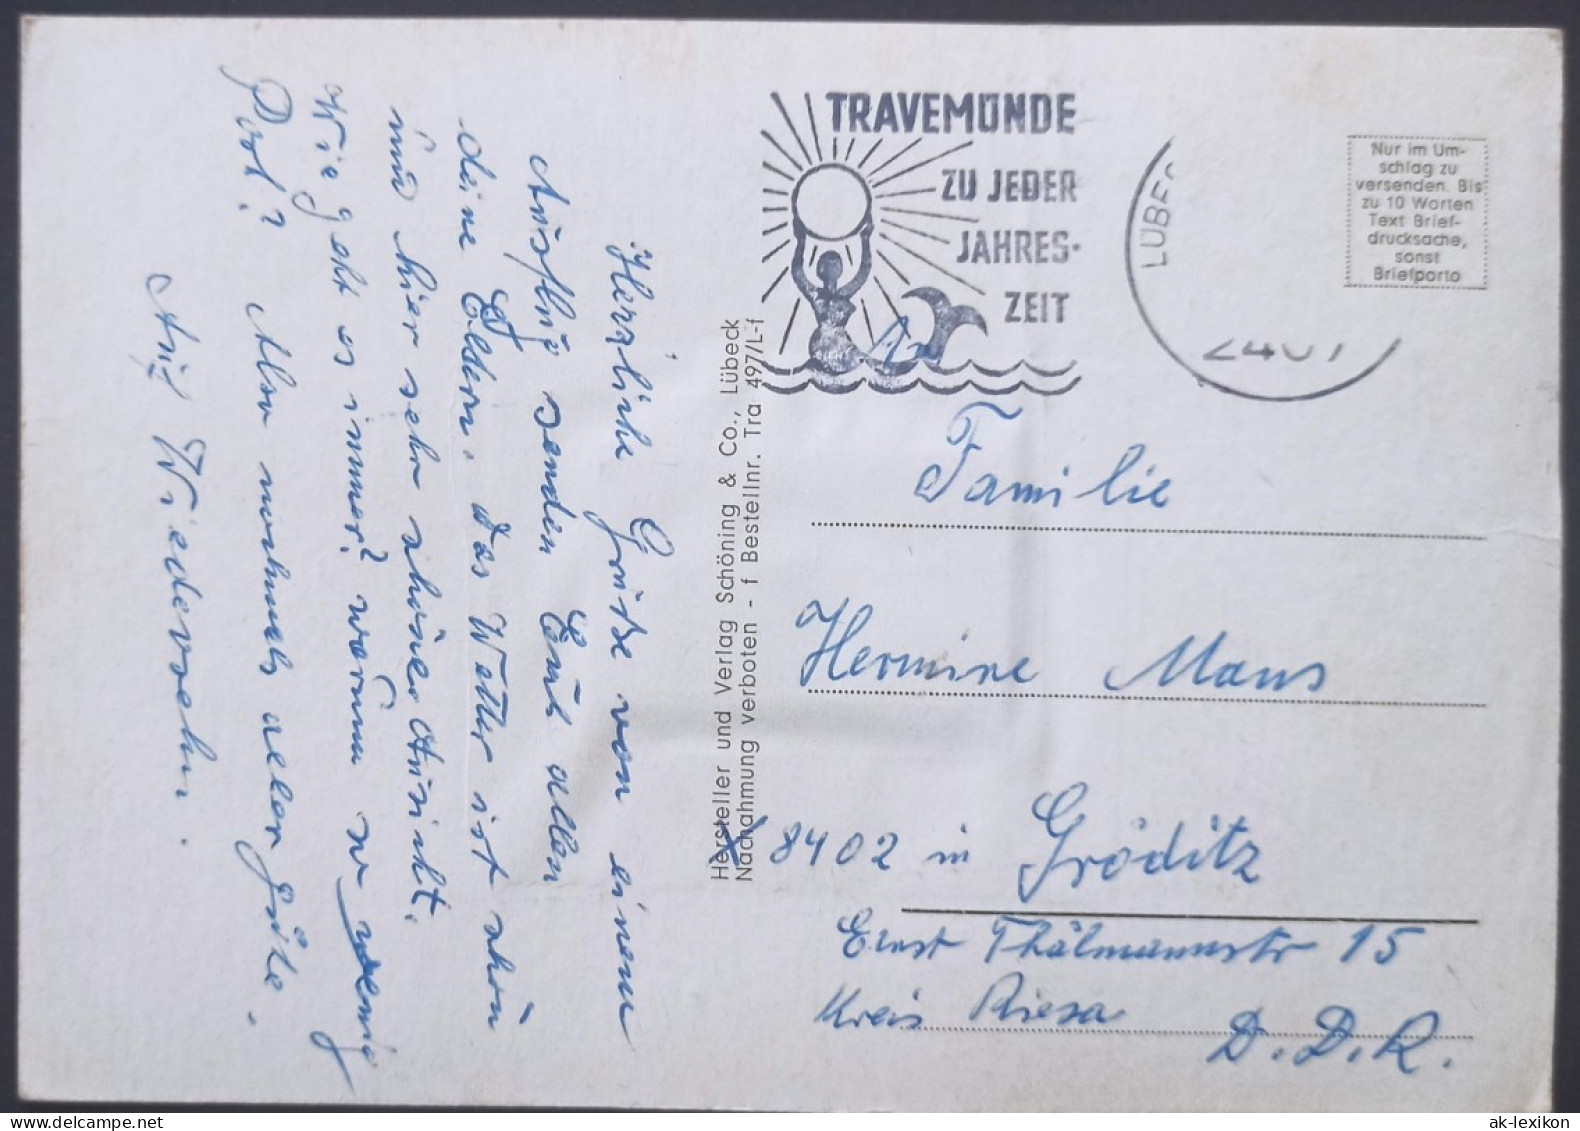 Herzliche Grüße von einem
Ausflug senden Euch allen
deine Eldern. Das Wetter ist schön
und hier sehr schöne Ansicht.
Wie geht es immer? warum so wenig
Post? Also nochmals alles gute.
Auf Wiedersehn.
Hersteller und Verlag Schöning & Co., Lübeck
Nachahmung verboten - f Bestellnr. Tra 497/L-f
TRAVEMÜNDE
ZU JEDER
JAHRES-
ZEIT
LÜBEC
2401
Nur im Um-
schlag zu
versenden. Bis
zu 10 Worten
Text Brief-
drucksache,
sonst
Briefporto
An
Familie
Hermine Maus
X 8402 in Gröditz
Ernst Thälmannstr 15
Kreis Riesa
D.D.R.
ak-lexikon